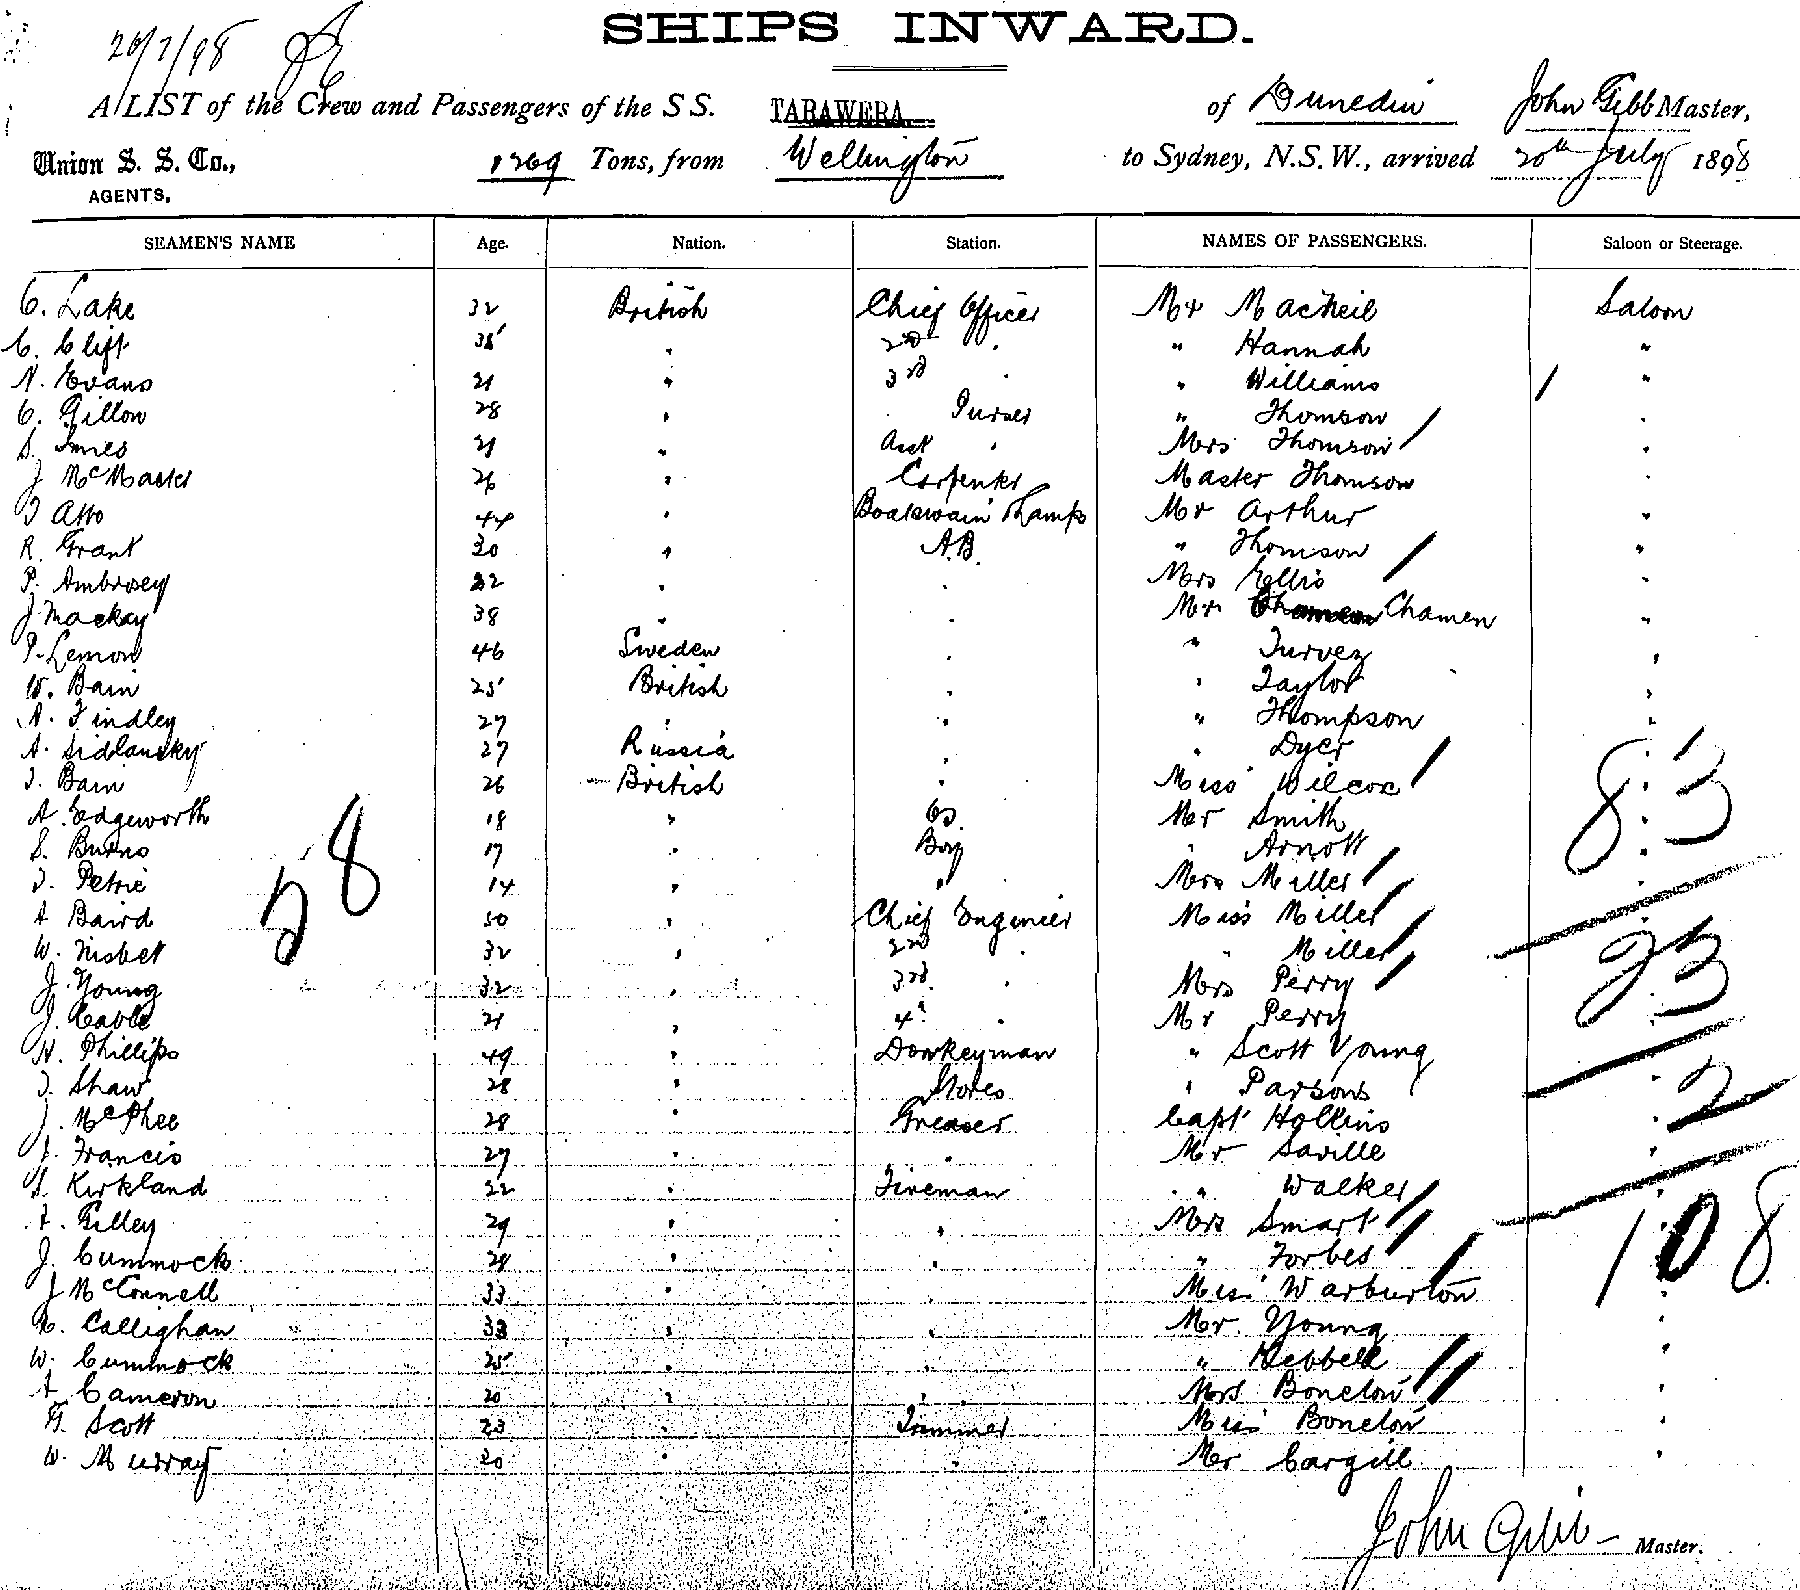 SHIPS INWARD.
20/7/98
A LIST of the Crew and Passengers of the SS. TARAWERA of Dunedin John Gibb Master,
Union S. S. Co., 1269 Tons, from Wellington to Sydney, N.S.W., arrived 20th July 1898
AGENTS,
SEAMEN'S NAME Age. Nation. Station. NAMES OF PASSENGERS. Saloon or Steerage.
C. Lake 32 British Chief Officer Mr MacNeil Saloon
C. Clift 35 " 2nd " " Hannah "
N. Evans 21 " 3rd " " Williams "
C. Gillon 28 " Purser " Thomson "
S. Innes 21 " Asst " Mrs Thomson "
J McMaster 26 " Carpenter Master Thomson "
44 " Boatswain & Lamps Mr Arthur "
R. Grant 30 " A.B. " Thomson "
P. Ambrosey 22 " " Mrs Ellis "
J Mackay 38 " " Mr Chamen "
P. Lemon 46 Sweden " " Turvez "
W. Bain 25 British " " Taylor "
A. Findley 27 " " " Thompson "
A. Sidlansky 27 Russia " " Dyer "
J. Bain 26 British " Miss Wilcox "
A. Edgeworth 18 " OS. Mr Smith "
S. Burns 17 " Boy " Arnott "
J. Petrie 14 " " Mrs Miller "
A Baird 50 " Chief Engineer Miss Miller "
W. Nisbet 32 " 2nd " " Miller "
J. Young 32 " 3rd " Mrs Perry "
J. Cable 21 " 4th " Mr Perry "
H. Phillips 49 " Donkeyman " Scott Young "
J. Shaw 28 " Stores " Parsons "
J. McPhee 28 " Greaser Capt Hollins "
J. Francis 27 " " Mr Saville "
S. Kirkland 22 " Fireman " Walker "
J. Gilley 29 " " Mrs Smart "
J. Cummock 28 " " " Forbes "
J McConnell 33 " " Miss Warburton "
N. Callighan 33 " " Mr. Young "
W. Cummock 25 " " " Hebbell "
A Cameron 20 " " Mrs Boncton "
G. Scott 23 " Trimmer Miss Boncton "
W. Murray 20 " " Mr Cargill "
58
83
23
2
108
John Gibb Master.